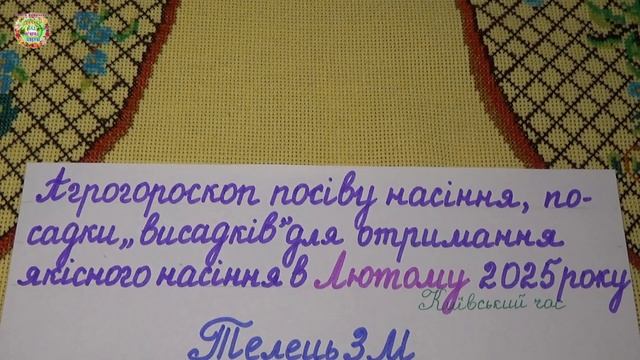 Агрогороскоп посіву насіння, по-
садки „висадків” для отримання
якісного насіння в Лютому 2025 року
Київський час
Телець 3 М